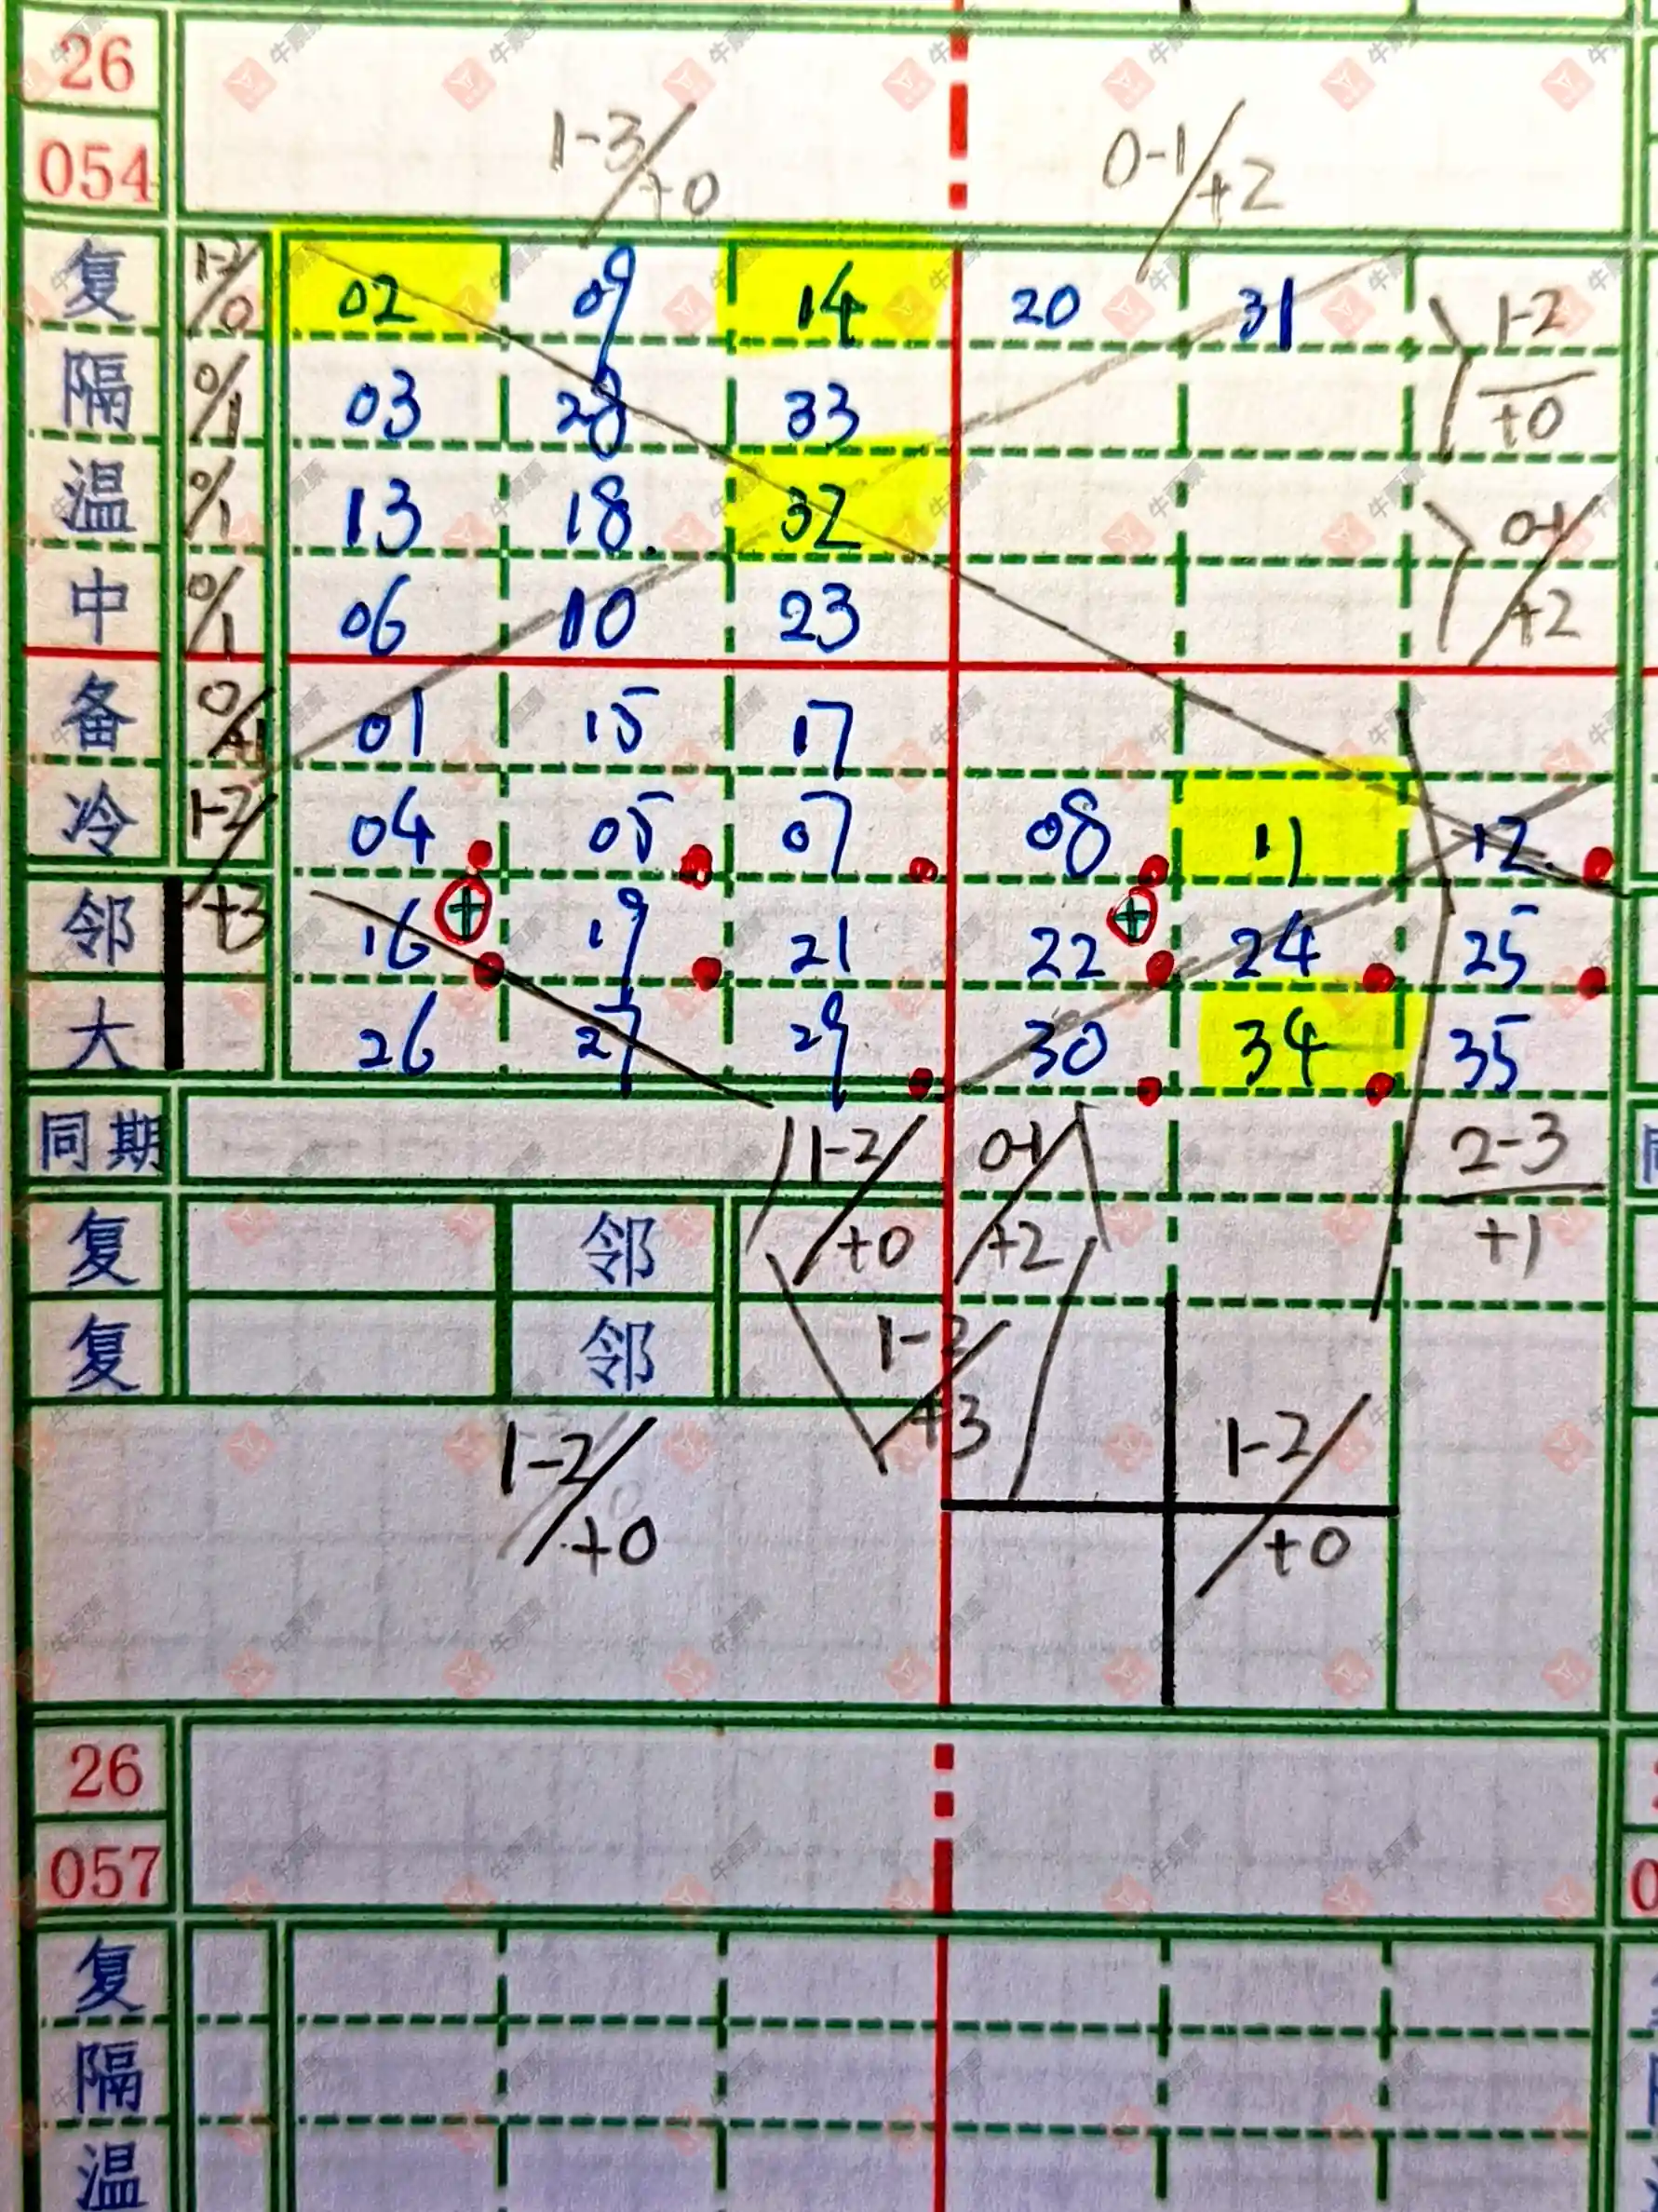 26
054
1-3/+0 0-1/+2
复 1-2/0 02 09 14 20 31 1-2/+0
隔 0/1 03 28 33
温 0/1 13 18 32 0-1/+2
中 0/1 06 10 23
备 0/+1 01 15 17
冷 1-2/+3 04 05 07 08 11 12
邻 16 19 21 22 24 25
大 26 27 29 30 34 35
同期 1-2/+0 0-1/+2 2-3/+1
复 邻
复 邻 1-2/+3
1-2/+0 1-2/+0
26
057
复
隔
温
牛票票